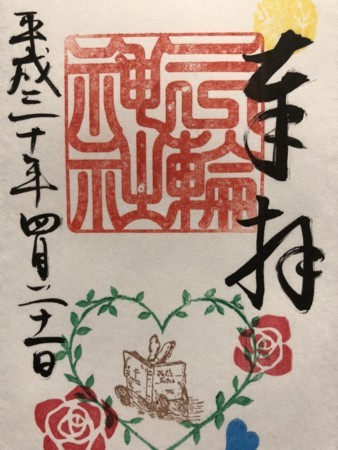 奉拝
三輪
神社
平成三十年四月二十一日